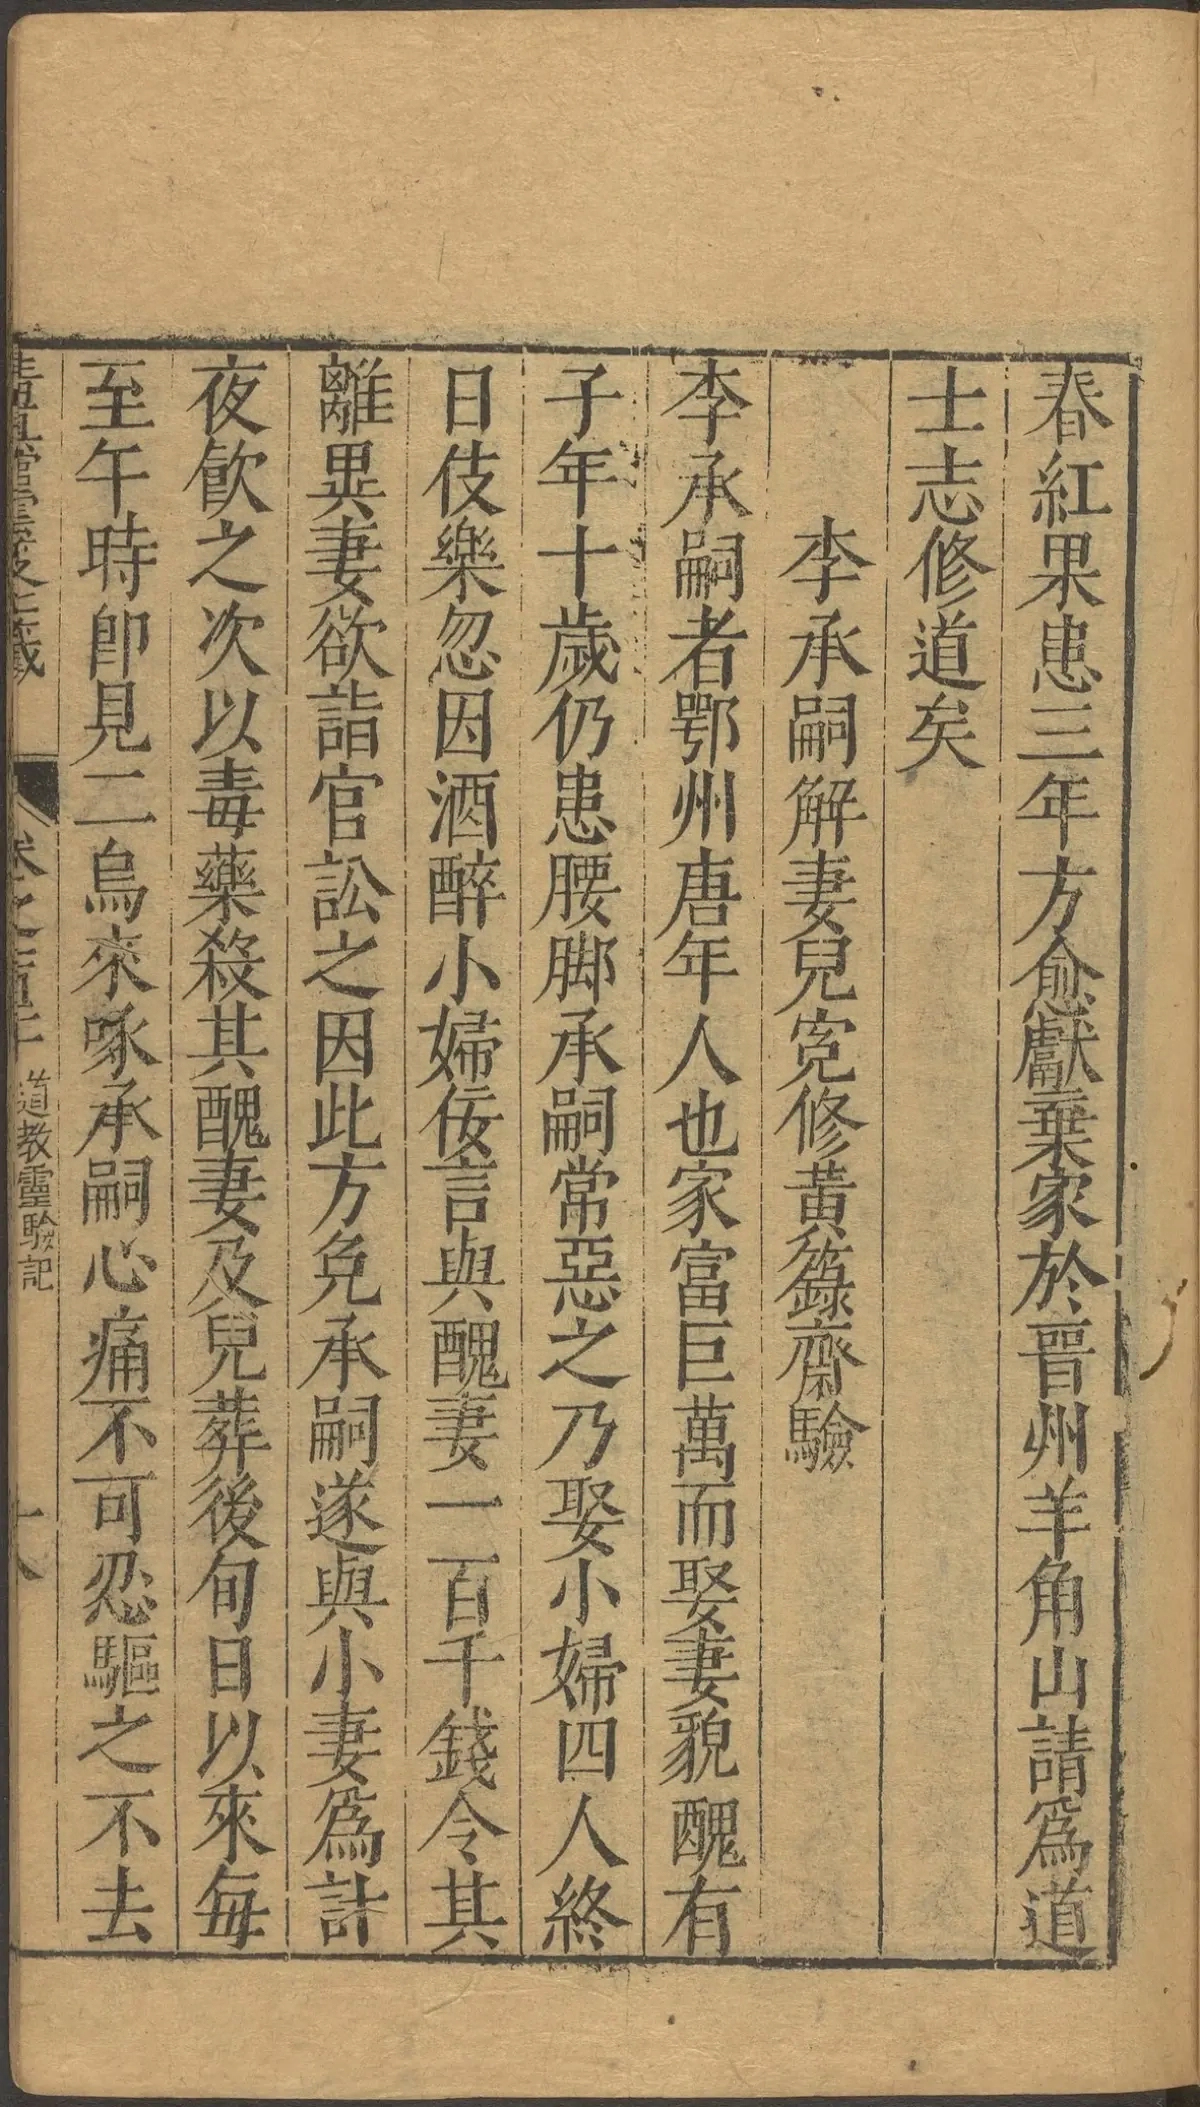 春紅果患三年方愈獻棄家於晉州羊角山請爲道
士志修道矣
李承嗣解妻兒寃修黃籙齋驗
李承嗣者鄂州唐年人也家富巨萬而娶妻貌醜有
子年十歲仍患腰脚承嗣常惡之乃娶小婦四人終
日伎樂忽因酒醉小婦佞言與醜妻一百千錢令其
離異妻欲詣官訟之因此方免承嗣遂與小妻爲計
夜飮之次以毒藥殺其醜妻及兒葬後旬日以來每
至午時卽見二烏來啄承嗣心痛不可忍驅之不去
道教靈驗記